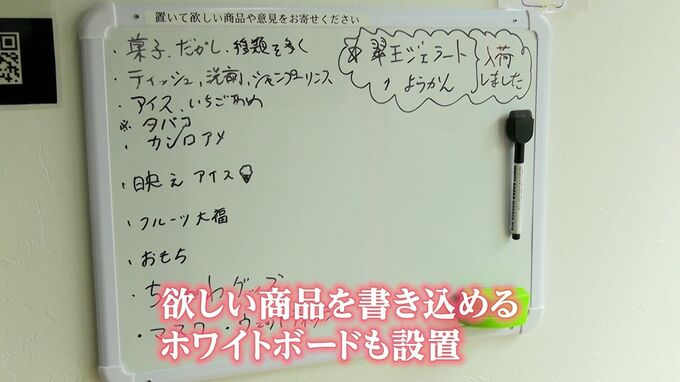 置いて欲しい商品や意見をお寄せください
・菓子、だがし、種類を多く
・ティッシュ、洗剤、シャンプーリンス
・アイス、いちごあめ
※タバコ
・カンロアメ
・映えアイス
・フルーツ大福
・おもち
グッズ
・マスク・ウェット
翠王ジェラート
〃 ようかん
入荷
しました
欲しい商品を書き込める
ホワイトボードも設置